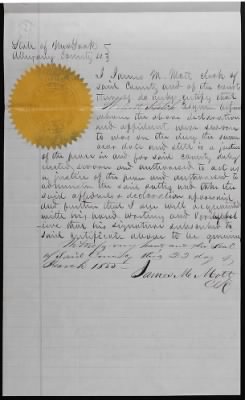 State of New York
Allegany County
I James M. Mott clerk of
said County and of the court
thereof do hereby certify that
Esquire before
whom the above declaration
and affidavit were sworn
to was on the day the same
bear date and still is a justice
of the peace in and for said county duly
elected sworn and authorized to act as
a justice of the peace and authorized to
administer the said oaths and take the
said affidavit & declaration aforesaid
and further that I am well acquainted
with his hand writing and verily
that his signature subscribed to
said certificate above to be genuine
Witness my hand and the seal
of said County this 22 day of
March
James M. Mott